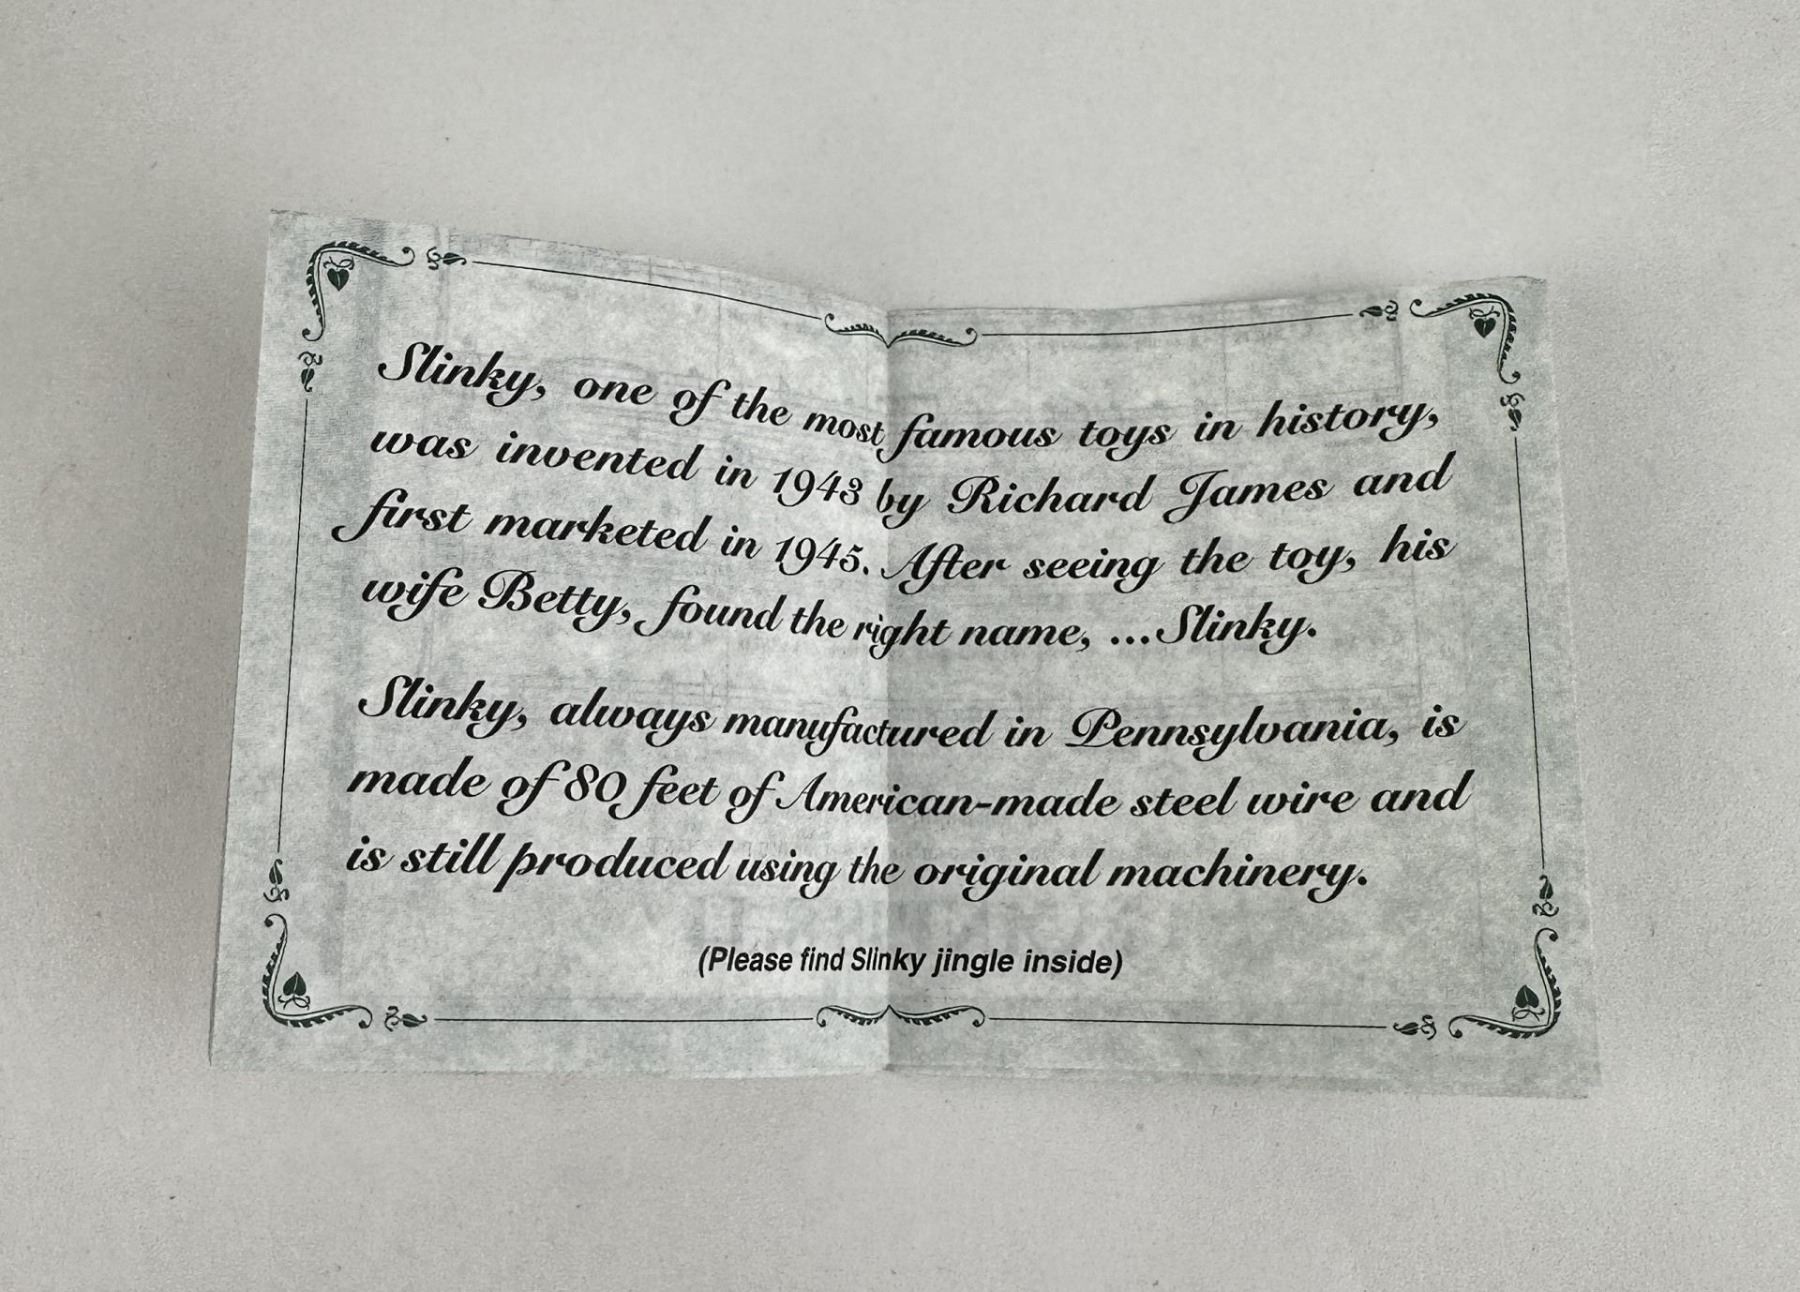 Slinky, one of the most famous toys in history,
was invented in 1943 by Richard James and
first marketed in 1945. After seeing the toy, his
wife Betty, found the right name, ...Slinky.
Slinky, always manufactured in Pennsylvania, is
made of 80 feet of American-made steel wire and
is still produced using the original machinery.
(Please find Slinky jingle inside)